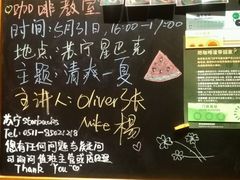 咖啡教室
时间:5月31日,16:00-17:00
地点:苏宁星巴克
主题:清爽一夏
主讲人:Oliver张
Mike 楊
苏宁Starbucks
Tel: 0511-85021218
您有任何问题与疑问
可询问值班主管或店经理
Thank You